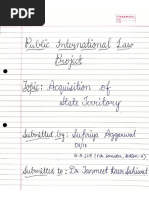 Public International Law
Project
Topic: Acquisition of
State Territory
Submitted by: Supriya Aggarwal
Submitted to: Dr. Tanmeet Kaur Sahiwal